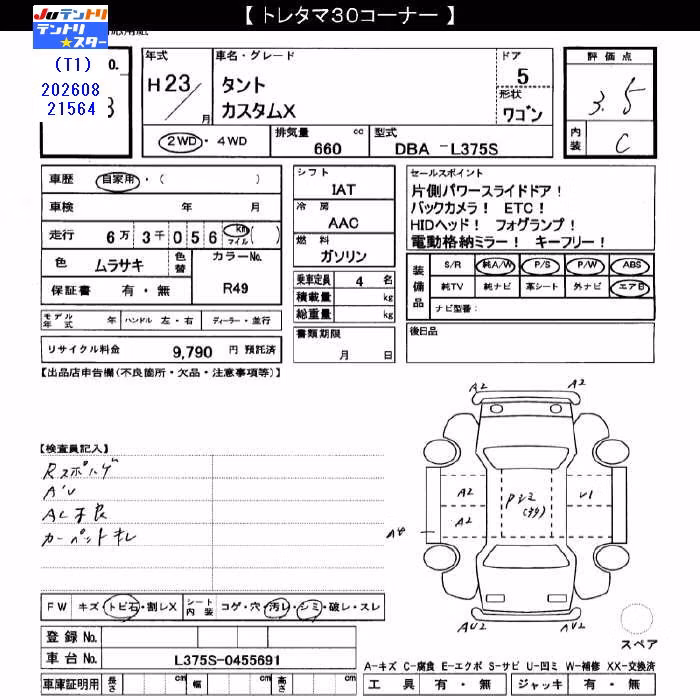 【 トレタマ30コーナー 】
JUテントリ
テントリ★スター
(T1)
202608
21564
No.
年式
H23/
月
車名・グレード
タント
カスタムX
ドア
5
形状
ワゴン
評価点
3.5
内装
C
2WD・4WD
排気量
660
cc
型式
DBA -L375S
車歴
自家用・( )
車検
年
月
走行
6万3千056
km
マイル
( )
色
ムラサキ
色替
カラーNo.
保証書
有・無
R49
モデル年式
年
ハンドル
左・右
ディーラー・並行
リサイクル料金
9,790
円
預託済
シフト
IAT
冷房
AAC
燃料
ガソリン
乗車定員
4
名
積載量
kg
総重量
kg
書類期限
月
日
セールスポイント
片側パワースライドドア!
バックカメラ! ETC!
HIDヘッド! フォグランプ!
電動格納ミラー! キーフリー!
装備品
S/R
純A/W
P/S
P/W
ABS
純TV
純ナビ
革シート
外ナビ
エアB
ナビ型番:
後日品
【出品店申告欄(不良箇所・欠品・注意事項等)】
【検査員記入】
Rスポイラゲ
AL不良
カーペットキレ
A2
A2
A2
A2
Pシミ
U1
AU2
AU2
スペア
FW
キズ・トビ石・割レX
シート内装
コゲ・穴・汚レ・シミ・破レ・スレ
登録No.
車台No.
L375S-0455691
車庫証明用
長さ
cm
幅
cm
高さ
cm
A-キズ C-腐食 E-エクボ S-サビ U-凹ミ W-補修 XX-交換済
工具
有・無
ジャッキ
有・無